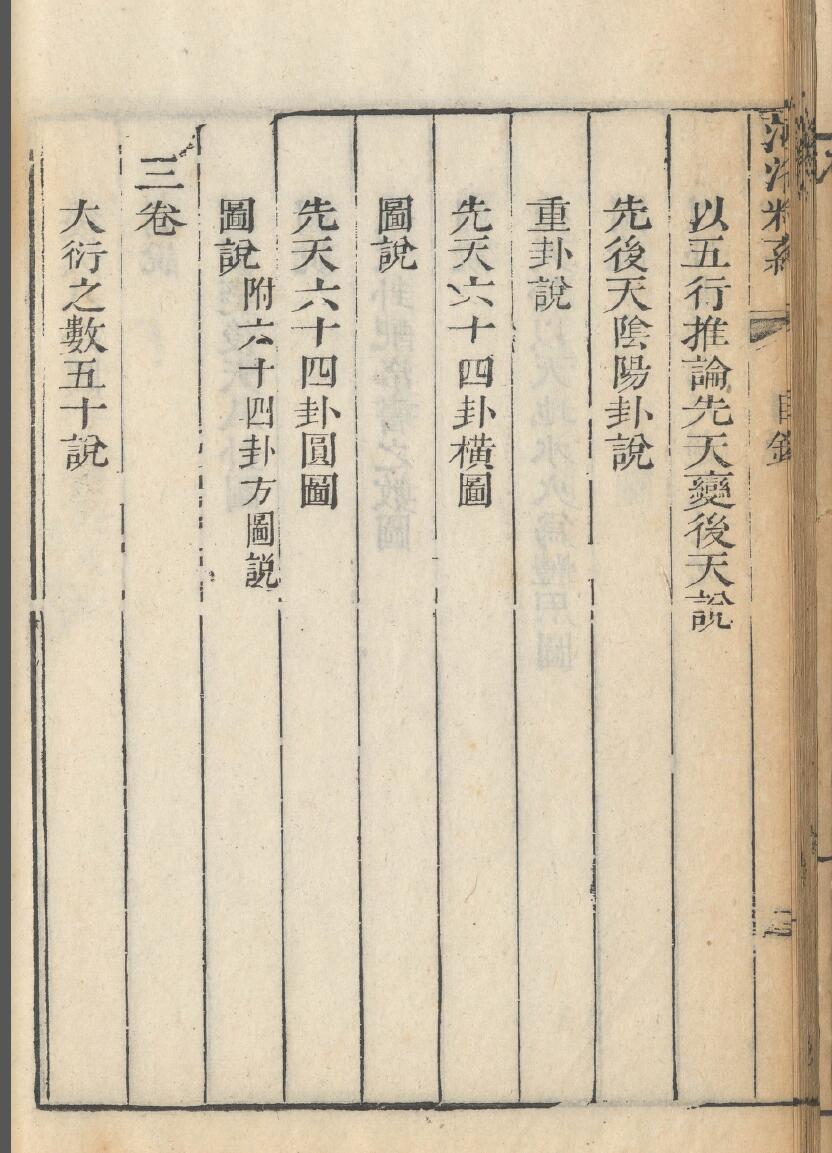 目錄
以五行推論先天變後天說
先後天陰陽卦說
重卦說
先天六十四卦橫圖
圖說
先天六十四卦圓圖
圖說附六十四卦方圖說
三卷
大衍之數五十說